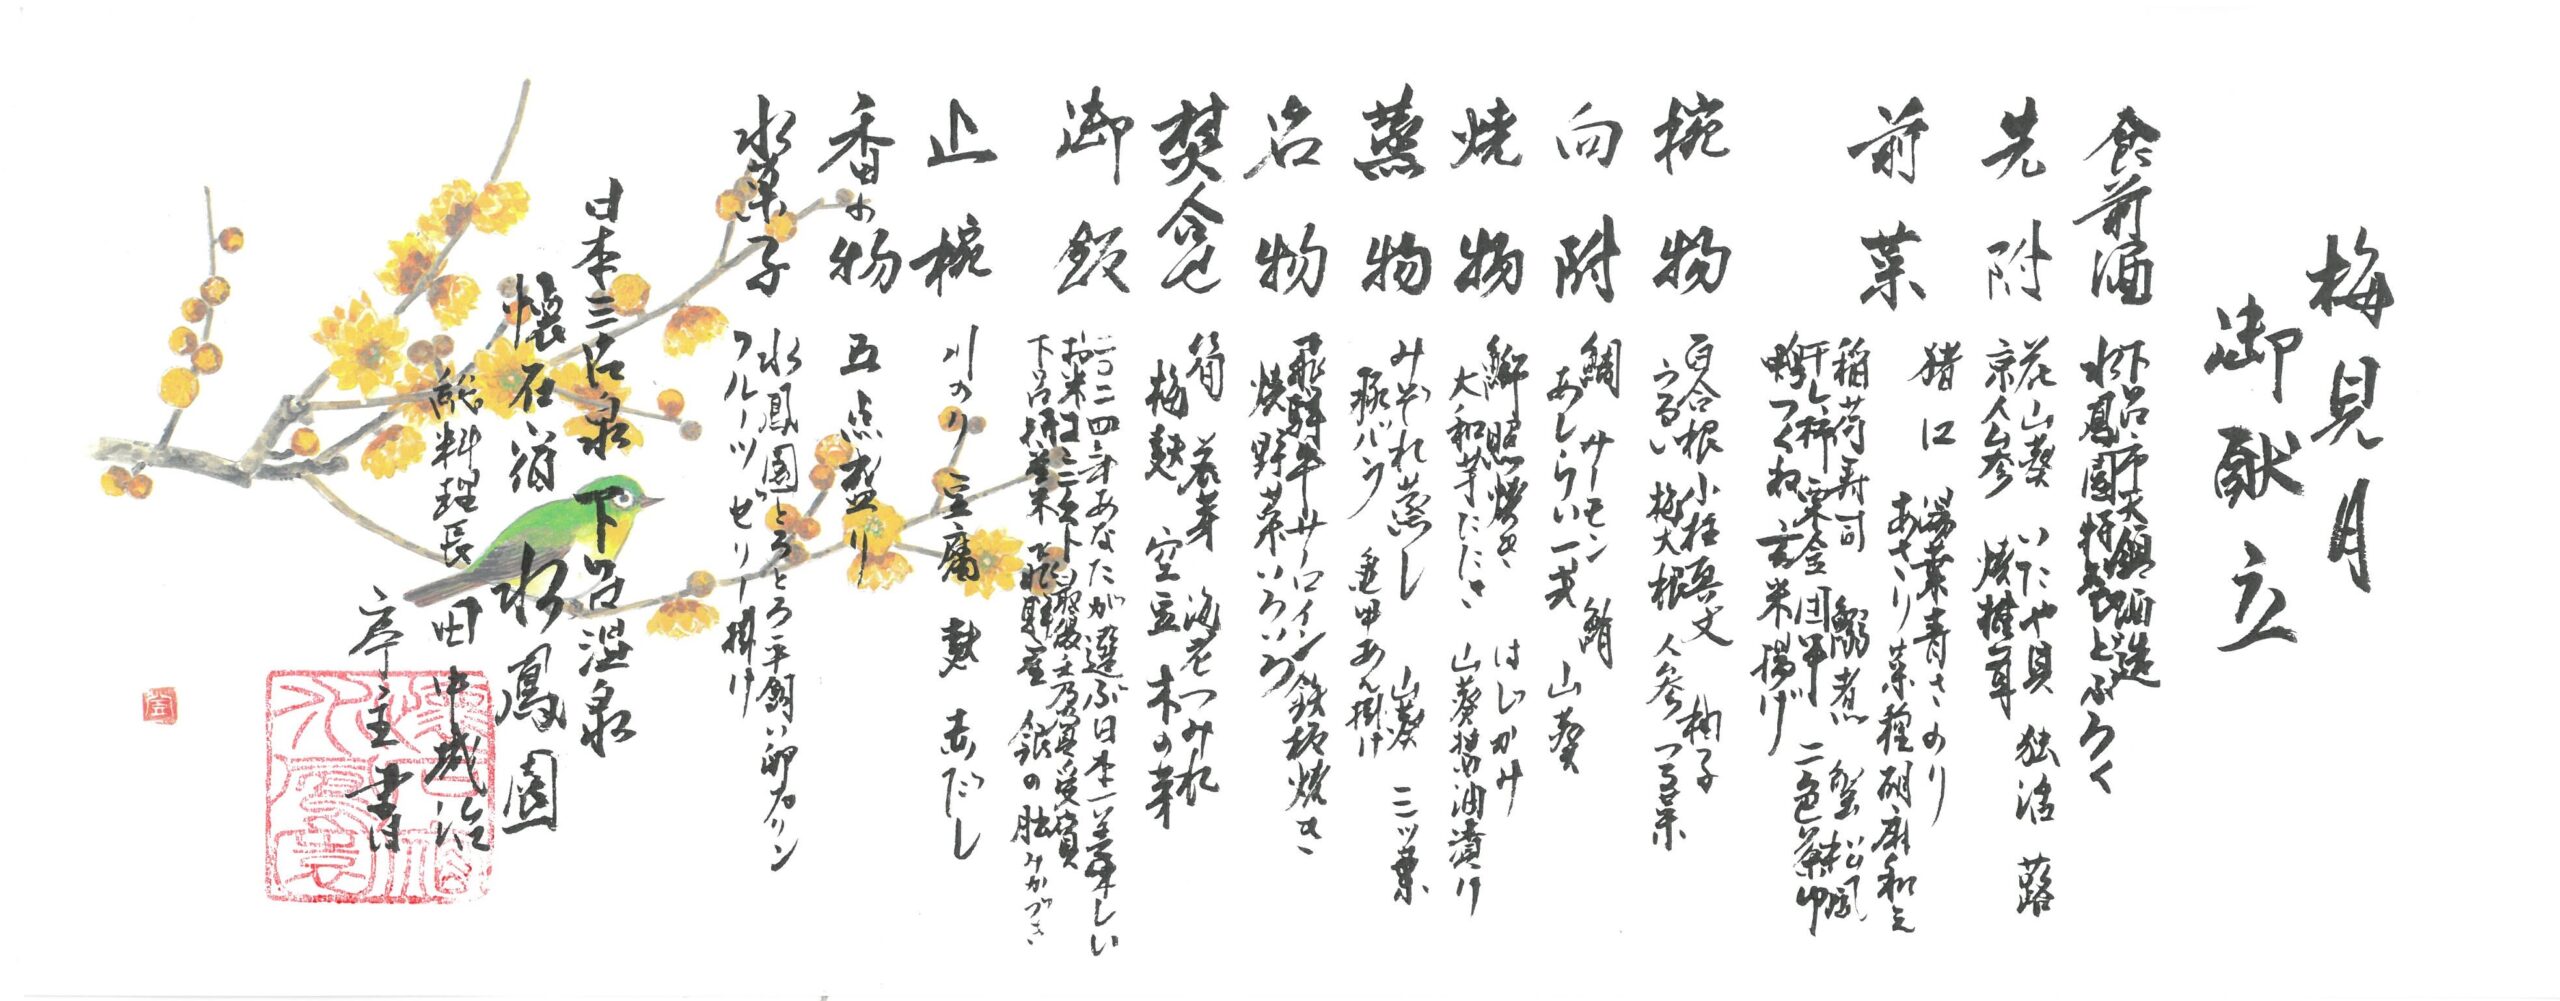 梅見月
御献立
食前酒
下呂市天領酒造
水鳳園特製どぶろく
先附
花山葵 いたや貝 独活 蕗
京人参 焼椎茸
前菜
猪口 湯葉青さのり
あさり菜種胡麻和え
稲荷寿司 鰯煮 蟹松風
干し柿栗金団 二色蕗
鴨つくね玄米揚げ
椀物
百合根小柱真丈 柚子
うるい 梅大根 人参 つる菜
向附
鯛 サーモン 鮪
あしらい一式 山葵
焼物
鰤照焼き はじかみ
大和芋たたき 山葵醤油漬け
蒸物
みぞれ蒸し 山葵 三ツ葉
豚バラ 亀甲あん掛け
名物
飛騨牛サーロイン鉄板焼き
焼野菜いろいろ
焚合せ
筍 若芽 海老つみれ
梅麩 空豆 木の芽
御飯
二〇二四年あなたが選ぶ日本一美味しい
お米コンテスト最優秀賞受賞
飛騨産 銀の朏みかづき
止椀
川のり 豆腐 麩 赤だし
香の物
五点盛り
水菓子
水鳳園とろとろ平飼い卵プリン
フルーツゼリー掛け
日本三名泉 下呂温泉
懐石宿 水鳳園
総料理長 田中
亭主 書